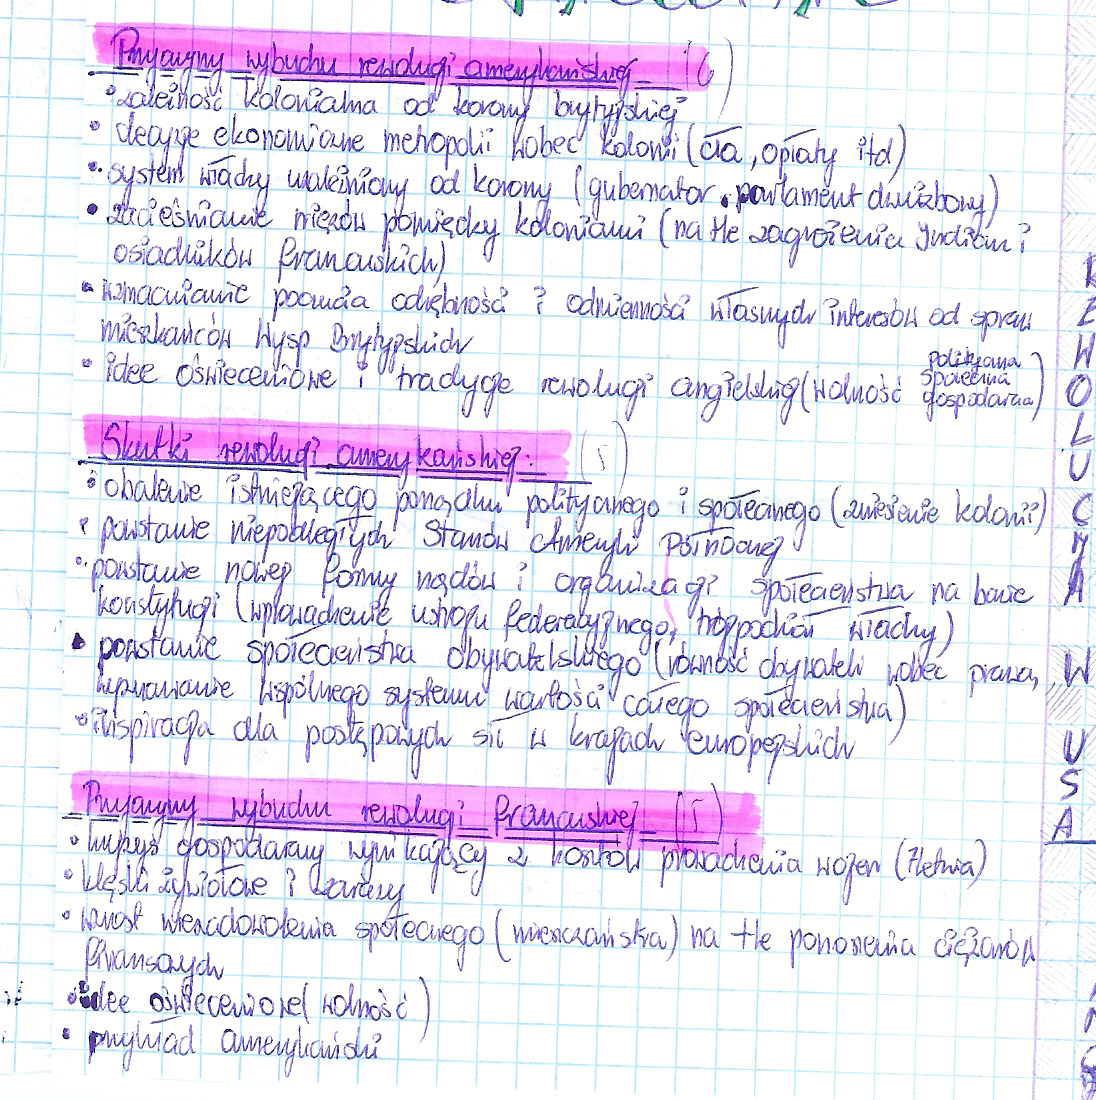 Przyczyny wybuchu rewolucji amerykańskiej (6)
• zależność kolonialna od korony brytyjskiej
• decyzje ekonomiczne metropolii wobec kolonii (cła, opłaty itd)
• system władzy uzależniony od korony (gubernator, parlament dwuizbowy)
• zacieśnianie więzów pomiędzy koloniami (na tle zagrożenia Indian i
osiadników francuskich)
• wzmacnianie poczucia odrębność i odmienność własnych interesów od spraw
mieszkańców Wysp Brytyjskich
• idee oświeceniowe i tradycje rewolucji angielskiej (wolność polityczna
społeczna
gospodarcza)
Skutki rewolucji amerykańskiej: (5)
• obalenie istniejącego porządku politycznego i społecznego (zniesienie kolonii)
• powstanie niepodległych Stanów Ameryki Północnej
• powstanie nowej formy rządów i organizacji społeczeństwa na bazie
konstytucji (wprowadzenie ustroju federacyjnego, trójpodział władzy)
• powstanie społeczeństwa obywatelskiego (równość obywateli wobec prawa,
wyznawanie wspólnego systemu wartości całego społeczeństwa)
• inspiracja dla postępowych sił w krajach europejskich
Przyczyny wybuchu rewolucji francuskiej (5)
• kryzys gospodarczy wynikający z kosztów prowadzenia wojen (7letnia)
• klęski żywiołowe i zarazy
• wzrost niezadowolenia społecznego (mieszczaństwa) na tle ponoszenia ciężarów
finansowych
• idee oświeceniowe (wolność)
• przykład amerykański
REWOLUCYJNA W USA